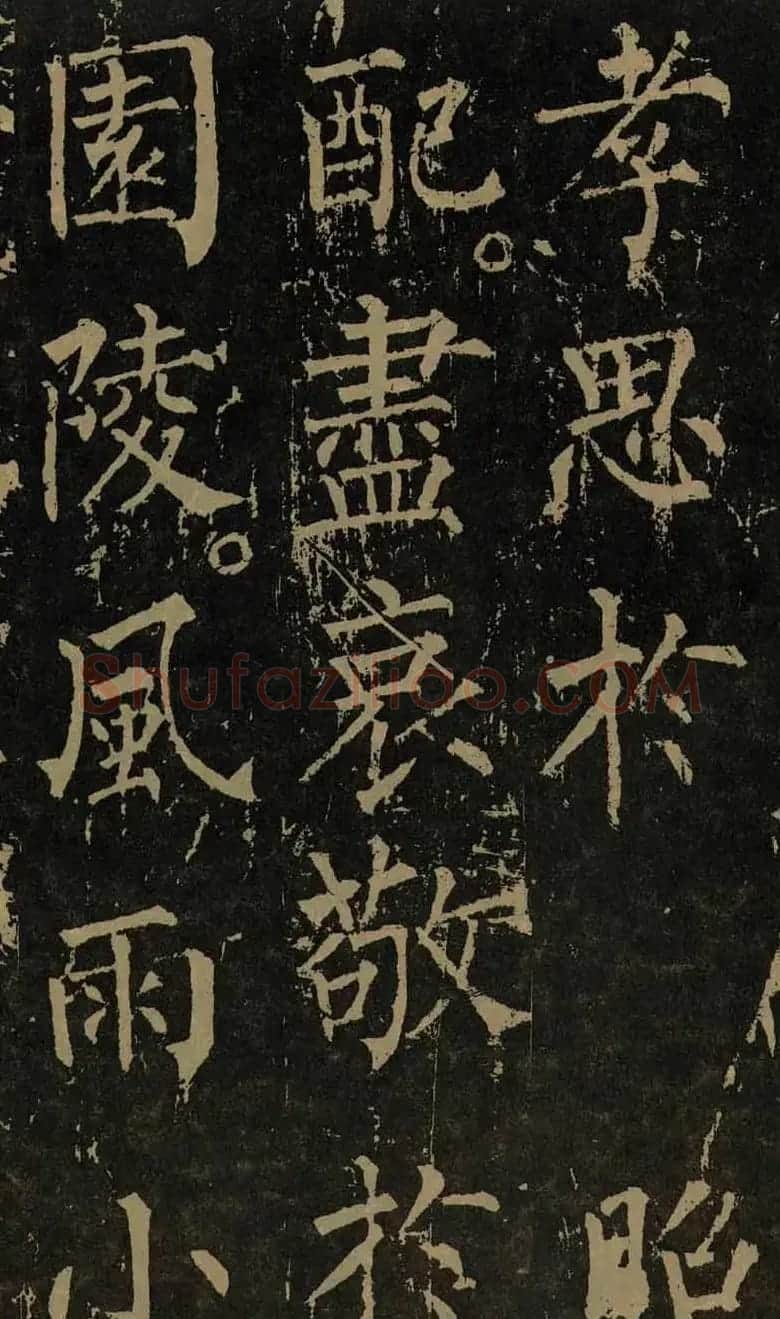 孝思於昭
配。盡哀敬於
園陵。風雨小
Shufaziliao.COM